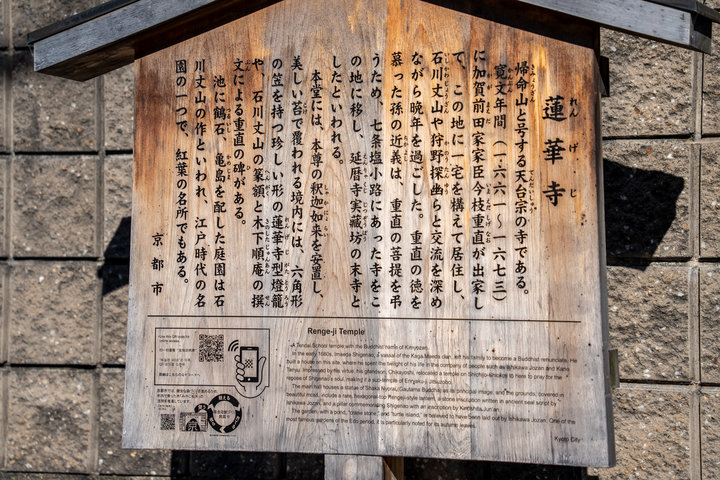 蓮華寺
れんげじ
帰命山と号する天台宗の寺である。
寛文年間(一六六一~一六七三)
に加賀前田家家臣今枝重直が出家し
て、この地に一宅を構えて居住し、
石川丈山や狩野探幽らと交流を深め
ながら晩年を過ごした。重直の徳を
慕った孫の近義は、重直の菩提を弔
うため、七条塩小路にあった寺をこ
の地に移し、延暦寺実蔵坊の末寺と
したといわれる。
本堂には、本尊の釈迦如来を安置し、
美しい苔で覆われる境内には、六角形
の笠を持つ珍しい形の蓮華寺型燈籠
や、石川丈山の篆額と木下順庵の撰
文による重直の碑がある。
池に鶴石、亀島を配した庭園は石
川丈山の作といわれ、江戸時代の名
園の一つで、紅葉の名所でもある。
京都市
Renge-ji Temple
A Tendai School temple with the Buddhist name of Kimyozan.
In the early 1660s, Imaeda Shigenao, a vassal of the Kaga Maeda clan, left his family to become a Buddhist renunciate. He
built a house on this site, where he spent the twilight of his life in the company of people such as Ishikawa Jozan and Kano
Tanyu. Impressed by his virtue, his grandson, Chikayoshi, moved a temple on Shichijo-Shiokoji to here to pray for the
repose of Shigenao's soul, making it a sub-temple of Enryaku-ji
The main hall houses a statue of Shaka Nyorai (Gautama Buddha) as its principal image, and the grounds, covered in
beautiful moss, include a rare, hexagonal-top Rengeji-style lantern, a stone inscription written in ancient seal script by
Ishikawa Jozan, and a pillar commemorating Shigenao with an inscription by Kinoshita Jun'an.
The garden, with a pond, "crane stone," and "turtle island," is believed to have been laid out by Ishikawa Jozan. One of the
most famous gardens of the Edo period, it is particularly noted for its autumn leaves.
Kyoto City